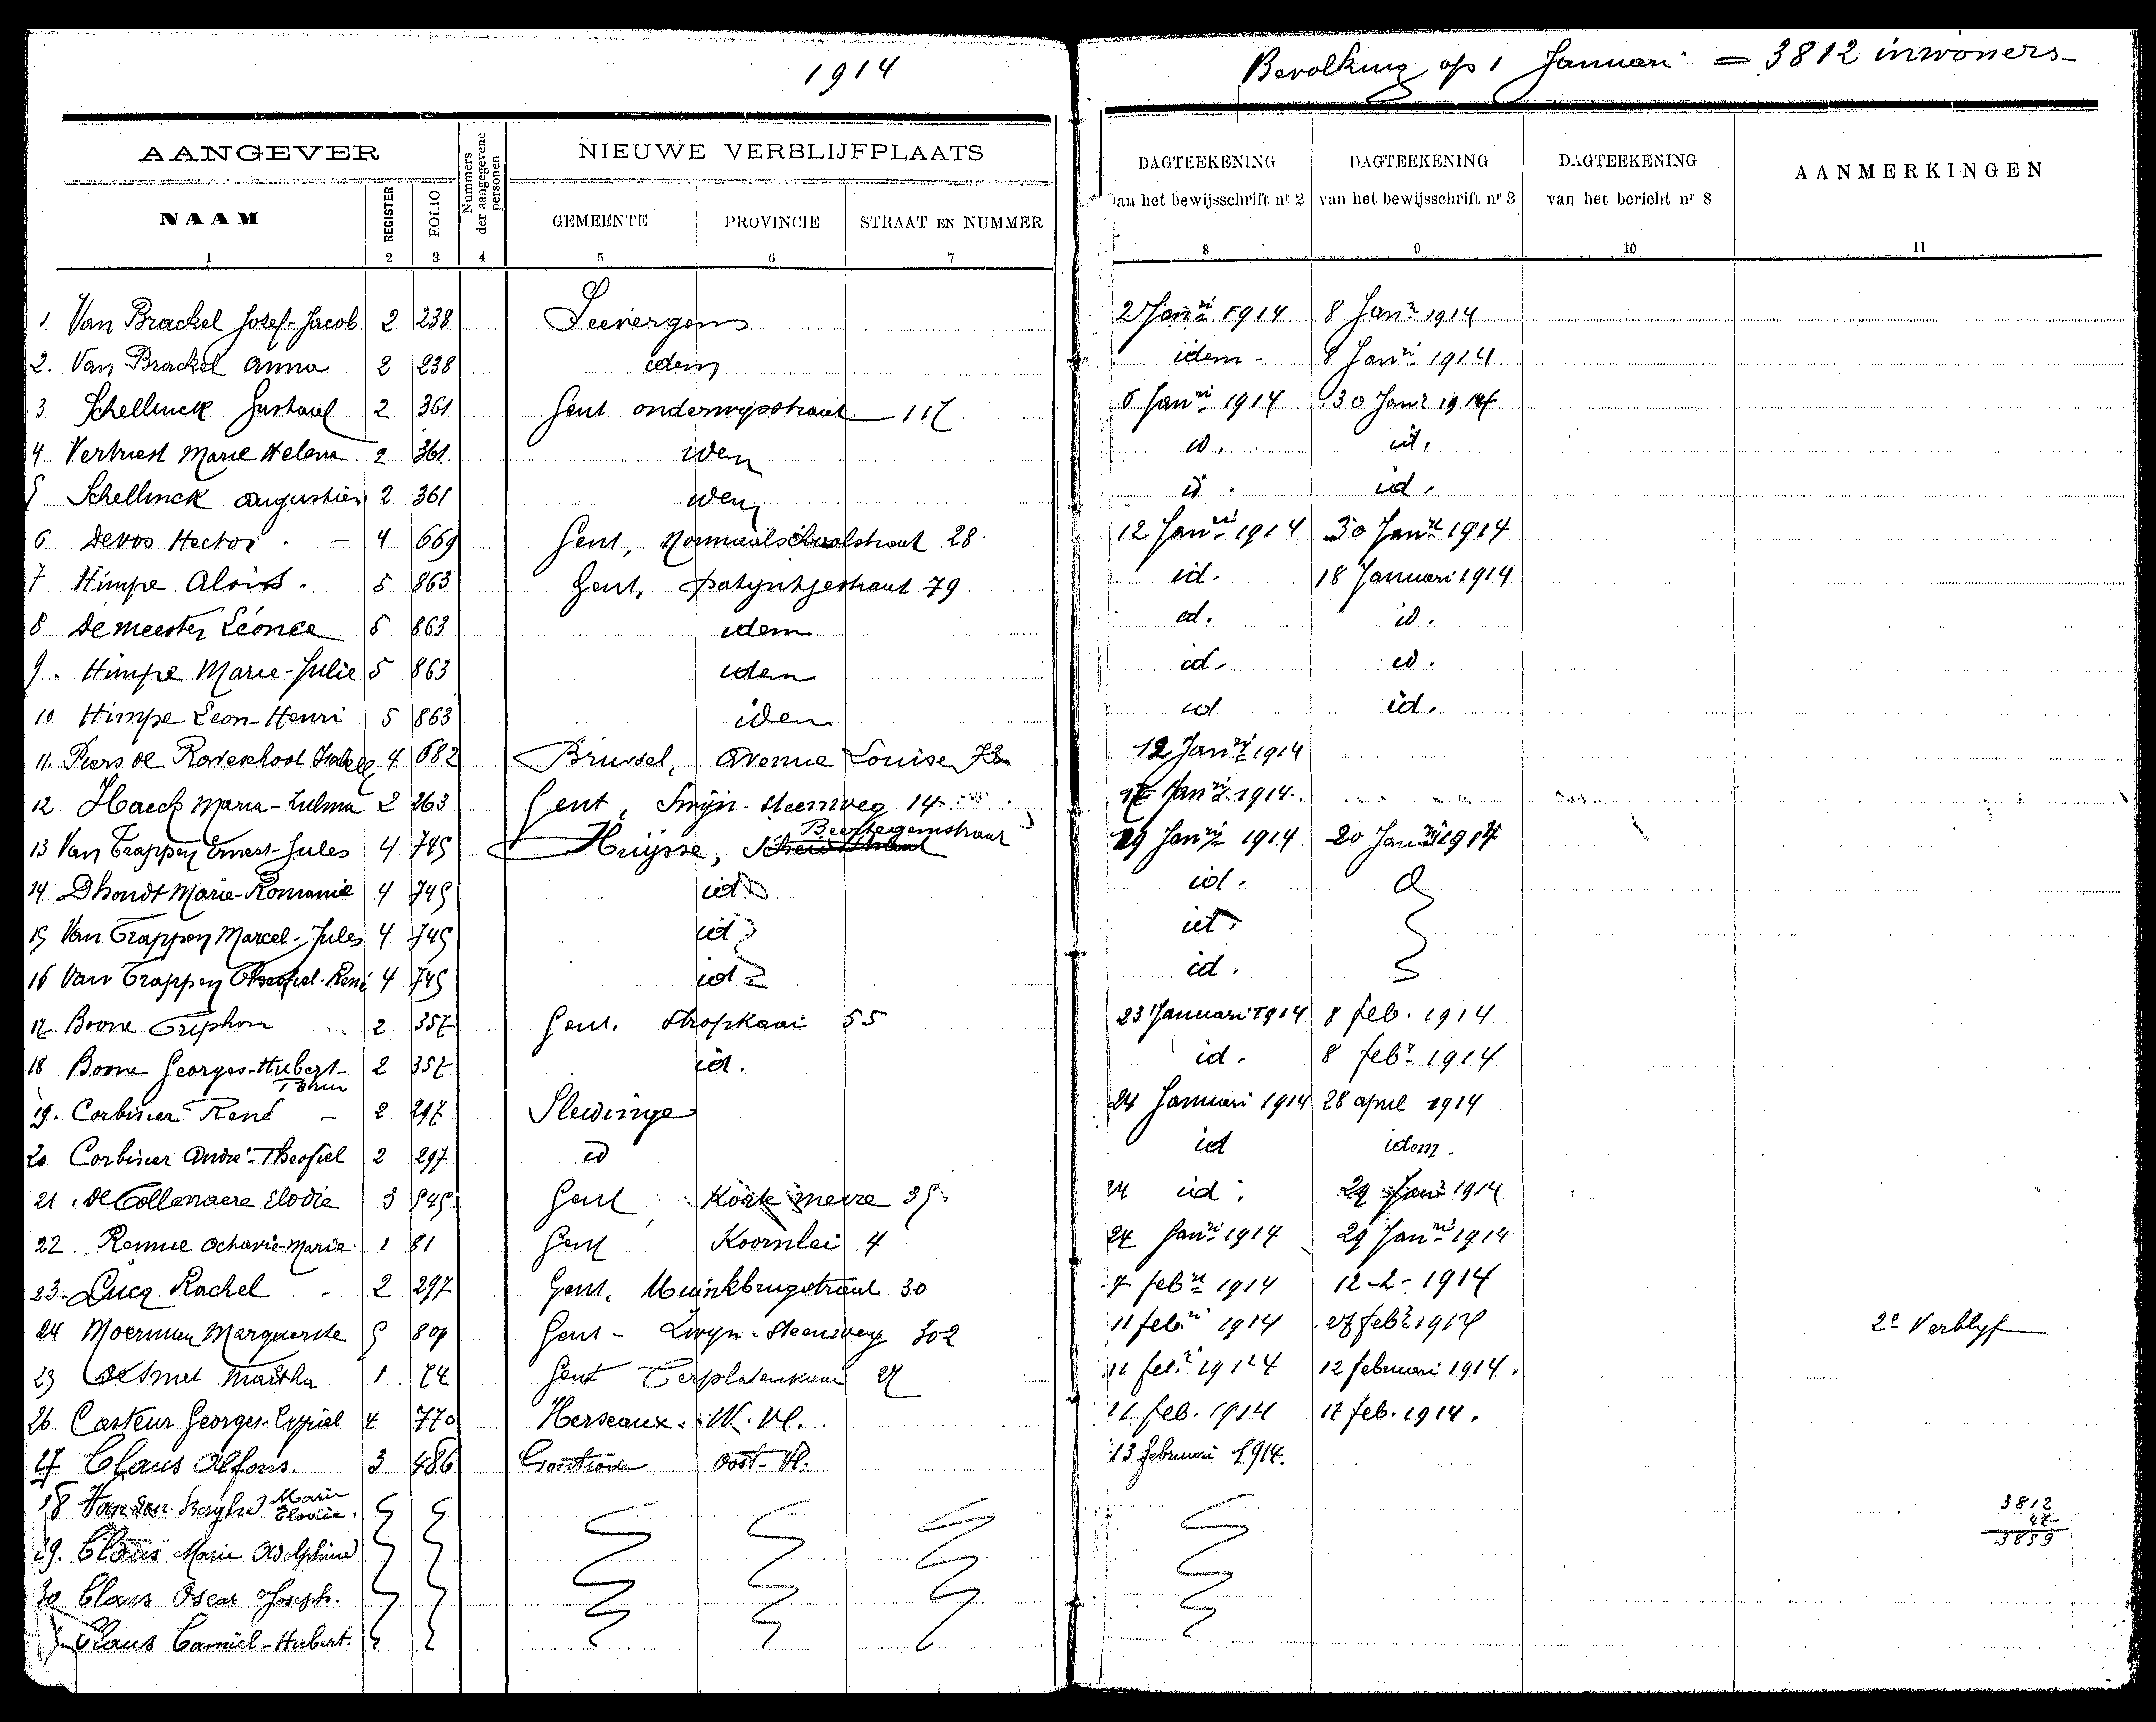 1914
Bevolking op 1 Januari = 3812 inwoners
AANGEVER
NIEUWE VERBLIJFPLAATS
NAAM
REGISTER
FOLIO
Nummers der aangegevene personen
GEMEENTE
PROVINCIE
STRAAT EN NUMMER
DAGTEEKENING
van het bewijsschrift nr 2
DAGTEEKENING
van het bewijsschrift nr 3
DAGTEEKENING
van het bericht nr 8
AANMERKINGEN
1 2 3 4 5 6 7 8 9 10 11
1. Van Brackel Josef-Jacob 2 238 Seevergem 2 Janri 1914 8 Janr 1914
2. Van Brackel Anna 2 238 idem idem - 8 Janri 1914
3 Schellinck Gustaaf 2 361 Gent onderwijsstraat 117 Janri 1914 30 Janr 1914
4. Vertriest Marie Helena 2 361 idem id. id.
5 Schellinck Augustien 2 361 idem id. id.
6 Devos Hector - 4 669 Gent, Normaalschoolstraat 28. 12 Janri 1914 30 Janri 1914
7 Himpe Aloïs. 5 863 Gent, patyntjestraat 79 id. 18 Januari 1914
8 Demeester Léonce 5 863 idem id. id.
9. Himpe Marie-Julie 5 863 idem id. id.
10 Himpe Leon-Henri 5 863 idem id id.
11. Piers de Raveschoot 4 682 Brussel, Avenue Louise 12 Janri 1914
12 Haeck Maria-Zulma 2 263 Gent, Steenweg 14 Janri 1914.
13 Van Trappen Ernest-Jules 4 745 Huijsse, Beertegemstraat 19 Janri 1914 20 Janri 1914
14 Dhondt Marie-Romanie 4 745 id id.
15 Van Trappen Marcel-Jules 4 745 id id.
16 Van Trappen Theofiel-René 4 745 id id.
17. Boone Triphon 2 357 Gent. Stropkaai 55 23 Januari 1914 8 feb. 1914
18 Boone Georges-Hubert- 2 357 id. id. 8 febr 1914
19. Corbisier René - 2 297 Sleidinge 24 Januari 1914 28 april 1914
20 Corbisier André-Theofiel 2 297 id id idem.
21. De Collenaere Elodie 3 545 Gent 35 24 id. 29 Janr 1914
22. Remue Octavie-Marie 1 81 Gent Koornlei 4 24 Janri 1914 29 Janri 1914
23. Lucq Rachel 2 297 Gent, Muinkbrugstraat 30 7 febri 1914 12-2-1914
24 Moerman Marguerite 5 Gent - Zwijn-Steenweg 302 11 febri 1914 27 febr 1914 2e Verblyf
25 Desmet Martha 1 74 Gent Terplatenkaai 27 11 febr 1914 12 februari 1914.
26 Casteur Georges-Cypriel 4 770 Herseaux. W. Vl. 11 feb. 1914 17 feb. 1914.
27 Claus Alfons. 3 486 Oost-Vl. 13 februari 1914.
28 Van den Berghe Marie Elodie.
29. Claus Marie Adolphine
30 Claus Oscar Joseph.
Claus Camiel-Hubert.
3812
47
3859